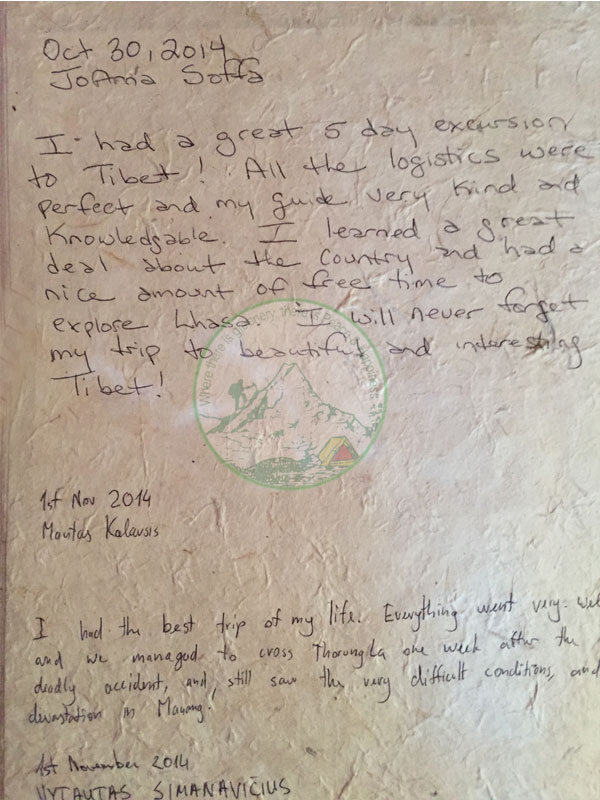 Oct 30, 2014
JoAnna Soffa
I had a great 5 day excursion
to Tibet! All the logistics were
perfect and my guide very kind and
knowledgable. I learned a great
deal about the country and had a
nice amount of free time to
explore Lhasa. I will never forget
my trip to beautiful and interesting
Tibet!
1st Nov 2014
I had the best trip of my life. Everything went very well
and we managed to cross Thorung La one week after the
deadly accident, and still saw the very difficult conditions, and
devastation in Manang!
1st November 2014
VYTAUTAS SIMANAVIČIUS